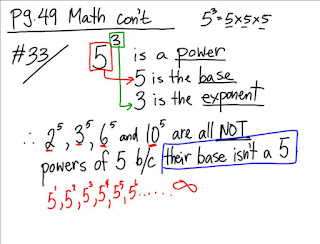 Pg. 49 Math con't
5³ = 5×5×5
#33/
5³ is a power
5 is the base
3 is the exponent
∴ 2⁵, 3⁵, 6⁵ and 10⁵ are all NOT
powers of 5 b/c their base isn't a 5
5¹, 5², 5³, 5⁴, 5⁵, 5⁶ ...... ∞